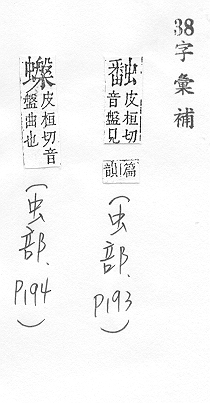 38字彙補
皮桓切
音盤見
篇
韻
(虫部.P193)
皮桓切音
盤曲也
(虫部.P194)